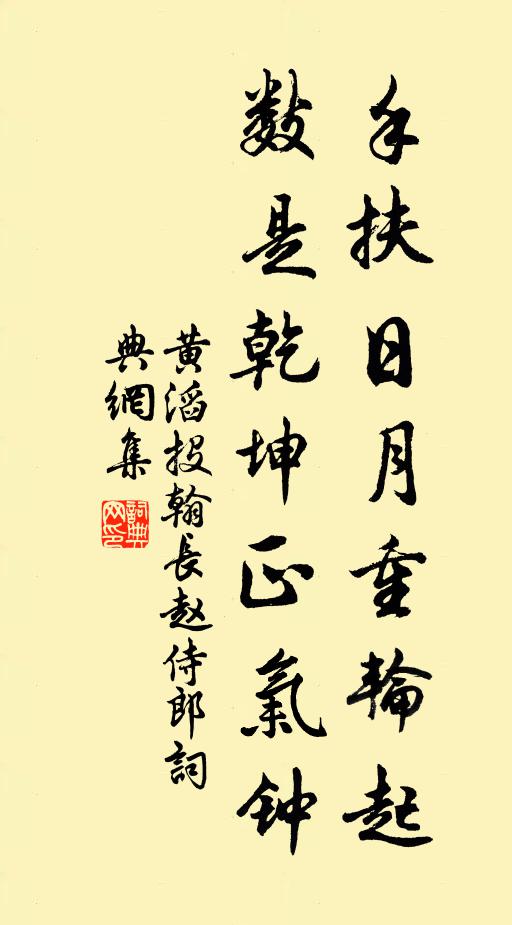 手扶日月重輪起
数是乾坤正氣钟
黄滔投翰長赵侍郎詞
典網集
詞典网印